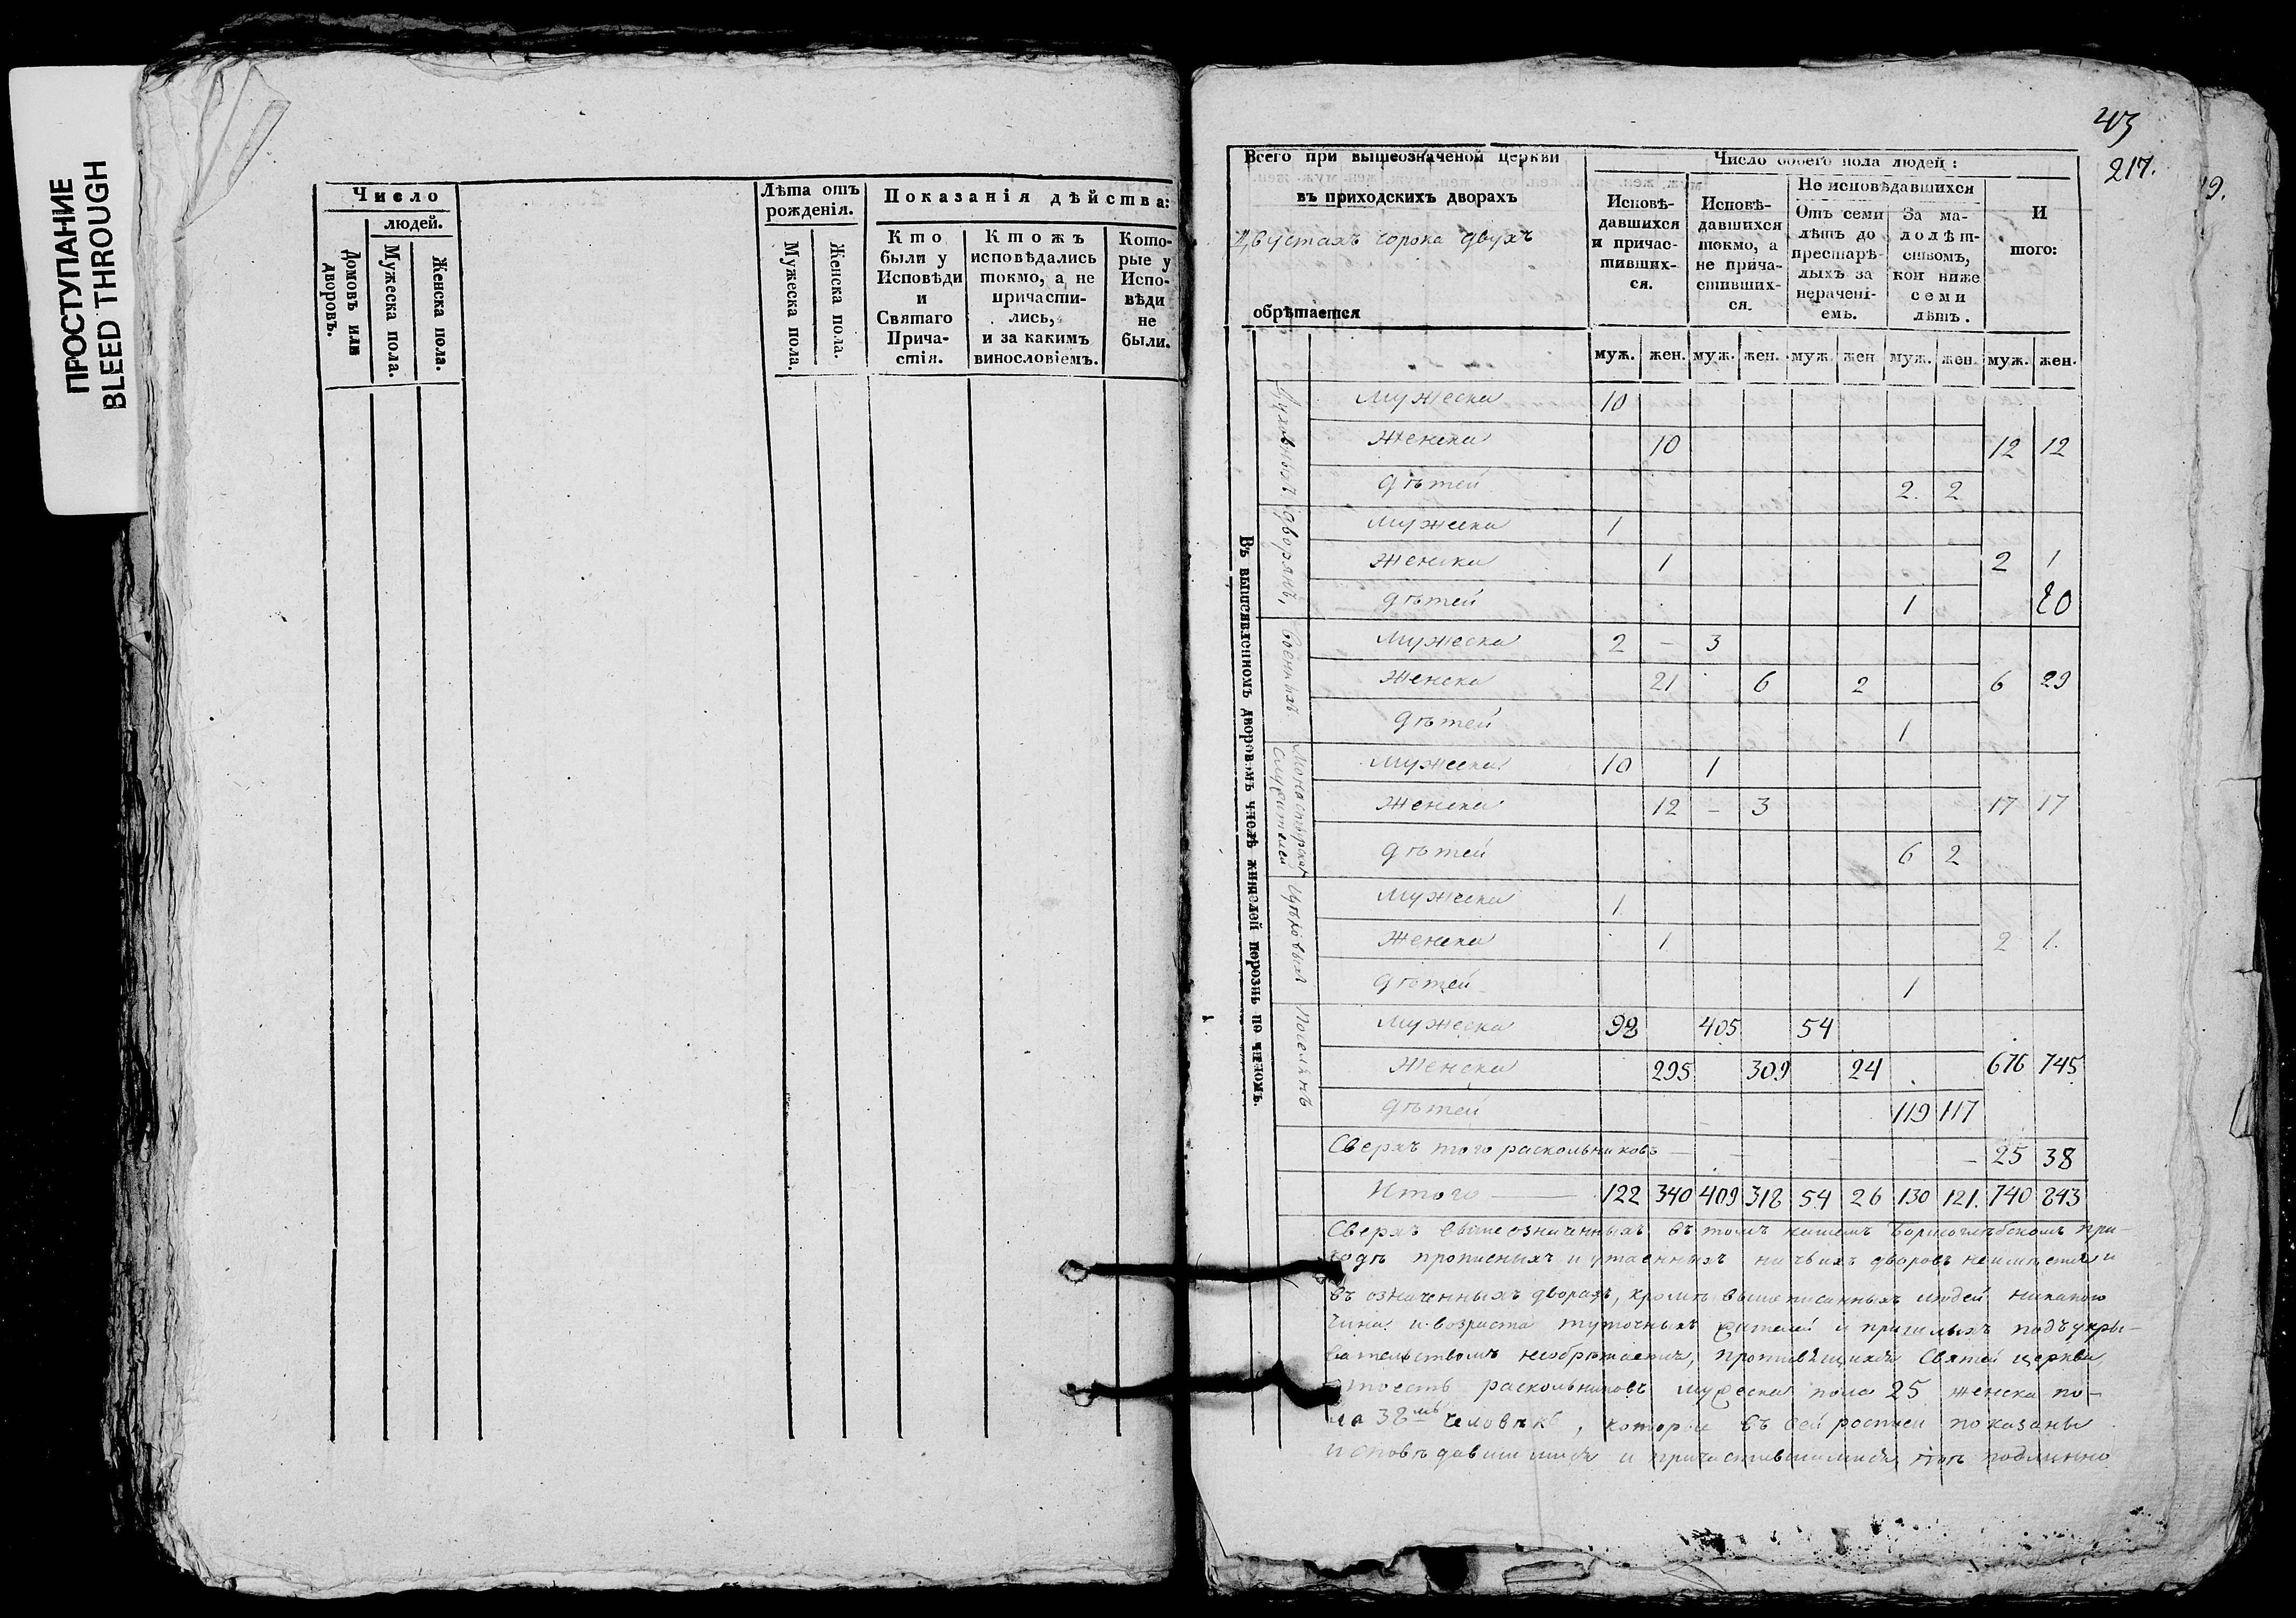 ПРОСТУПАНИЕ
BLEED THROUGH
Число
людей.
Домовъ или дворовъ.
Мужеска пола.
Женска пола.
Лѣта отъ рожденія.
Мужеска пола.
Женска пола.
Показанія дѣйства:
Кто были у Исповѣди и Святаго Прича-
стія.
Ктожъ исповѣдались токмо, а не причасти-
лись, и за какимъ винословіемъ.
Кото-
рые у Испо-
вѣди не были.
43
217.
9.
Всего при вышеозначеной церкви
въ приходскихъ дворахъ
Двустахъ сорока двухъ
обрѣтается
Число обоего пола людей:
Исповѣ-
давшихся
и причас-
тивших-
ся.
Исповѣ-
давшихся
токмо, а
не прича-
стивших-
ся.
Не исповѣдавшихся
Отъ семи
лѣтъ до
престарѣ-
лыхъ за
нерачені-
емъ.
За ма-
лолѣт-
ствомъ,
кои ниже
семи
лѣтъ.
И
того:
муж. жен. муж. жен. муж. жен. муж. жен. муж. жен.
Въ вышеявленномъ дворовомъ числѣ жителей порознь по чиномъ.
Духовныхъ
Мужеска 10
Женска 10 12 12
Дѣтей 2. 2
Дворянъ,
Мужеска 1
Женска 1 2 1
Дѣтей 1 20
Военныхъ
Мужеска 2 – 3
Женска 21 6 2 6 29
Дѣтей 1
Монастырскихъ служителей
Мужеска 10 1
Женска 12 – 3 17 17
Дѣтей 6 2
Цѣховыхъ
Мужеска 1
Женска 1 2 1.
Дѣтей 1
Поселянъ
Мужеска 98 405 54
Женска 295 309 24 676 745
Дѣтей 119 117
Сверхъ того раскольниковъ – 25 38
Итого 122 340 409 318 54 26 130 121. 740 843
Сверхъ вышеозначенныхъ въ томъ нашемъ Борисоглѣбскомъ при-
ходѣ прописныхъ и утаенныхъ ничьихъ дворовъ неимѣется и
въ означенныхъ дворахъ, кромѣ вышеписанныхъ людей никакого
чина и возраста туточныхъ жителей и пришлыхъ подъ укры-
вательствомъ необрѣтается, противящихся Святей церкви
тоесть раскольниковъ мужеска пола 25 женска по-
ла 38мь человѣкъ, которые въ сей росписи показаны
исповѣдавшимися и причастившимися, тѣ подлинно